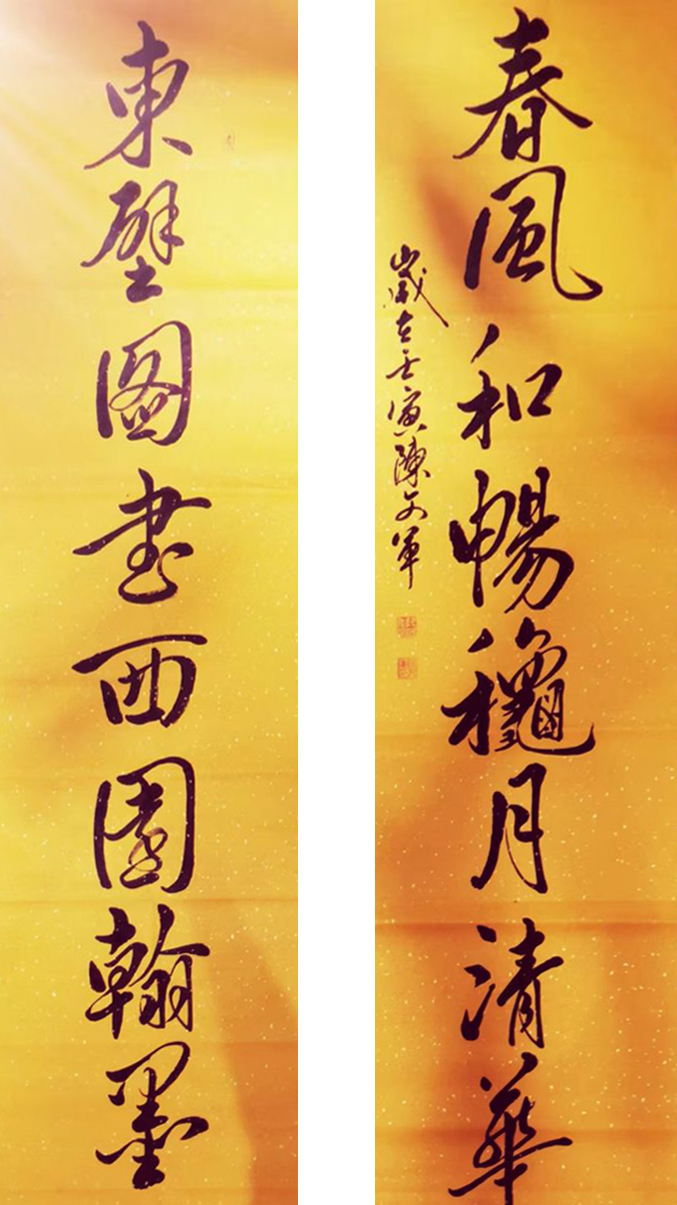 東壁圖書西園翰墨
春風和暢龝月清華
歲在壬寅陳文軍